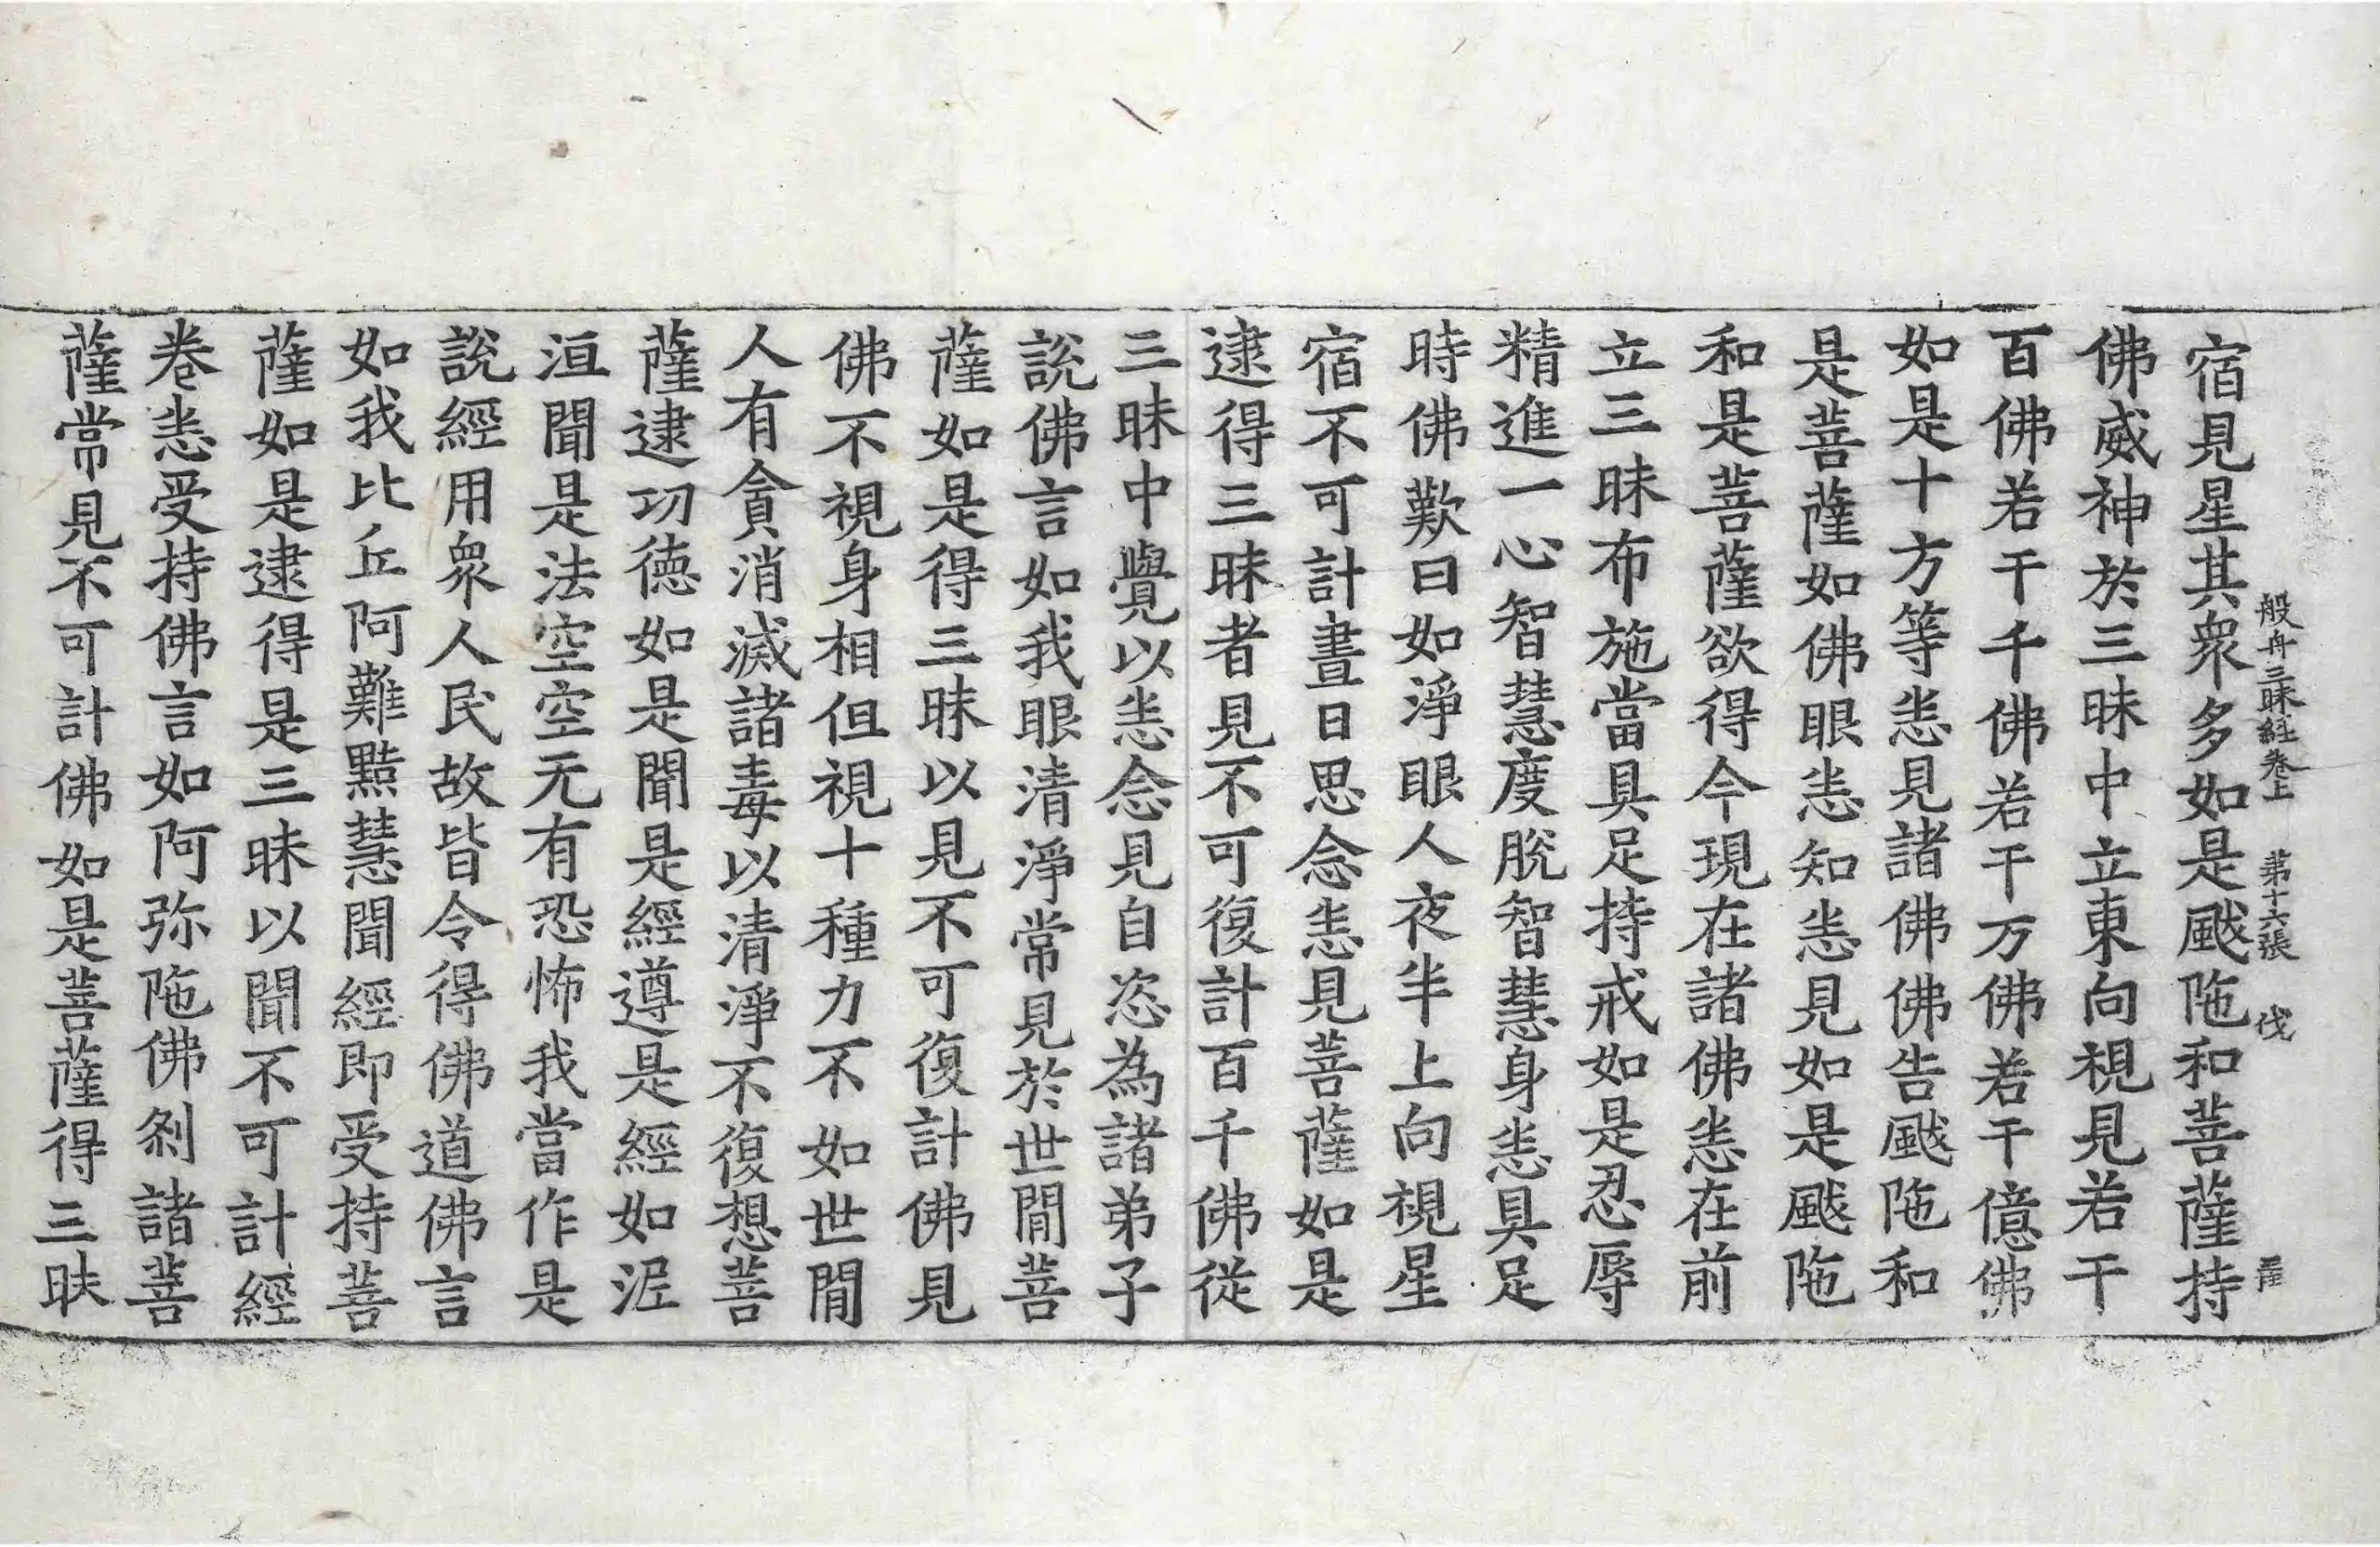 般舟三昧経卷上　第十六張　伐
宿見星其衆多如是颰陁和菩薩持
佛威神於三昧中立東向視見若干
百佛若干千佛若干万佛若干億佛
如是十方等恙見諸佛佛告颰陁和
是菩薩如佛眼恙知恙見如是颰陁
和是菩薩欲得今現在諸佛恙在前
立三昧布施當具足持戒如是忍辱
精進一心智慧度脫智慧身恙具足
時佛歎曰如淨眼人夜半上向視星
宿不可計晝日思念恙見菩薩如是
逮得三昧者見不可復計百千佛從
三昧中覺以恙念見自恣為諸弟子
說佛言如我眼清淨常見於世閒菩
薩如是得三昧以見不可復計佛見
佛不視身相但視十種力不如世閒
人有貪消滅諸毒以清淨不復想菩
薩逮㓛德如是聞是經遵是經如泥
洹聞是法空空无有恐怖我當作是
說經用衆人民故皆令得佛道佛言
如我比丘阿難黠慧聞經即受持菩
薩如是逮得是三昧以聞不可計經
卷恙受持佛言如阿弥陁佛剎諸菩
薩常見不可計佛如是菩薩得三昧